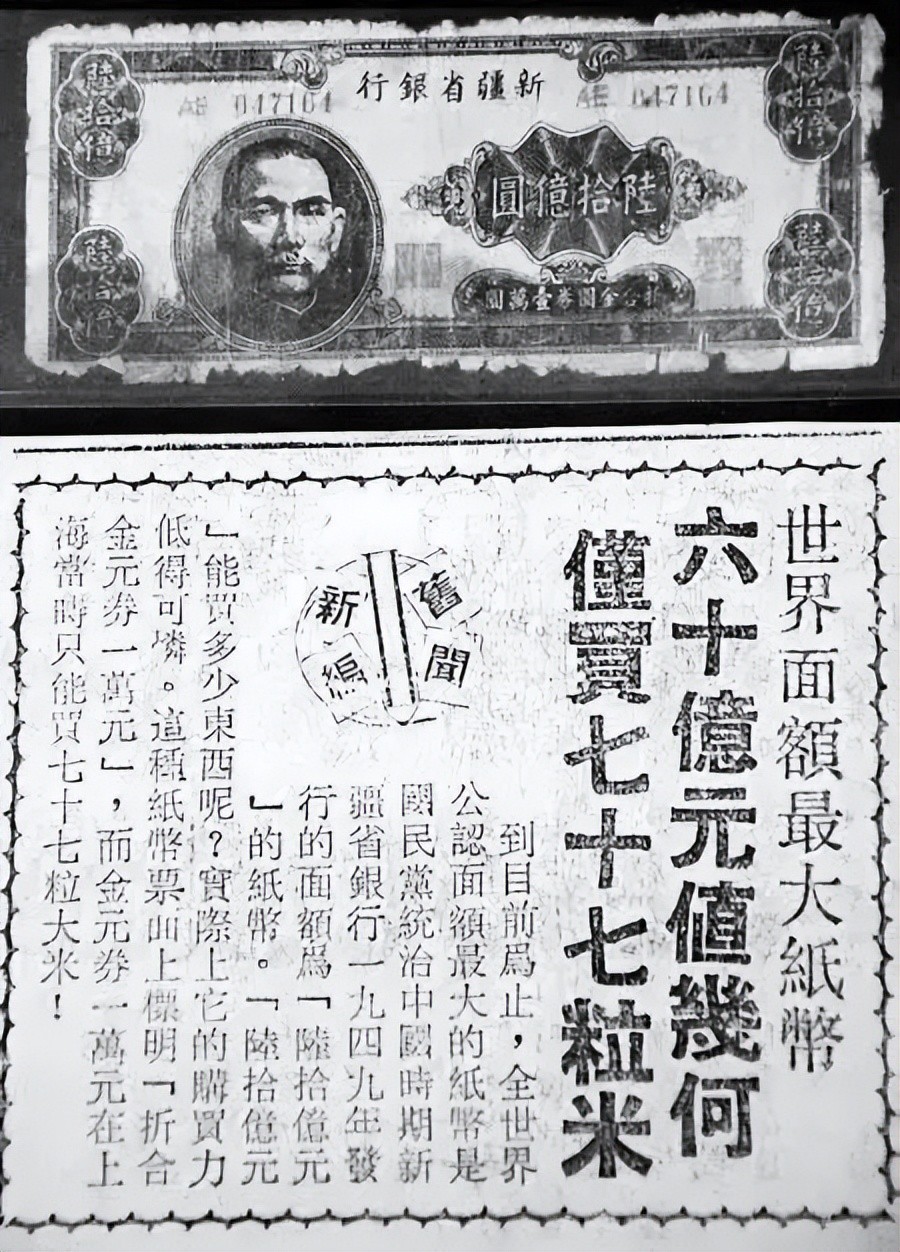 新疆省銀行
AE 047164
AE 047164
陸拾億
陸拾億
陸拾億圓
折合金圓券壹萬圓
陸拾億
陸拾億
世界面額最大紙幣
六十億元值幾何
僅買七十七粒米
舊聞
新編
到目前爲止，全世界
公認面額最大的紙幣是
國民黨統治中國時期新
疆省銀行一九四九年發
行的面額爲「陸拾億元
」的紙幣。「陸拾億元
」能買多少東西呢？實際上它的購買力
低得可憐。這種紙幣票面上標明「折合
金元券一萬元」，而金元券一萬元在上
海當時只能買七十七粒大米！